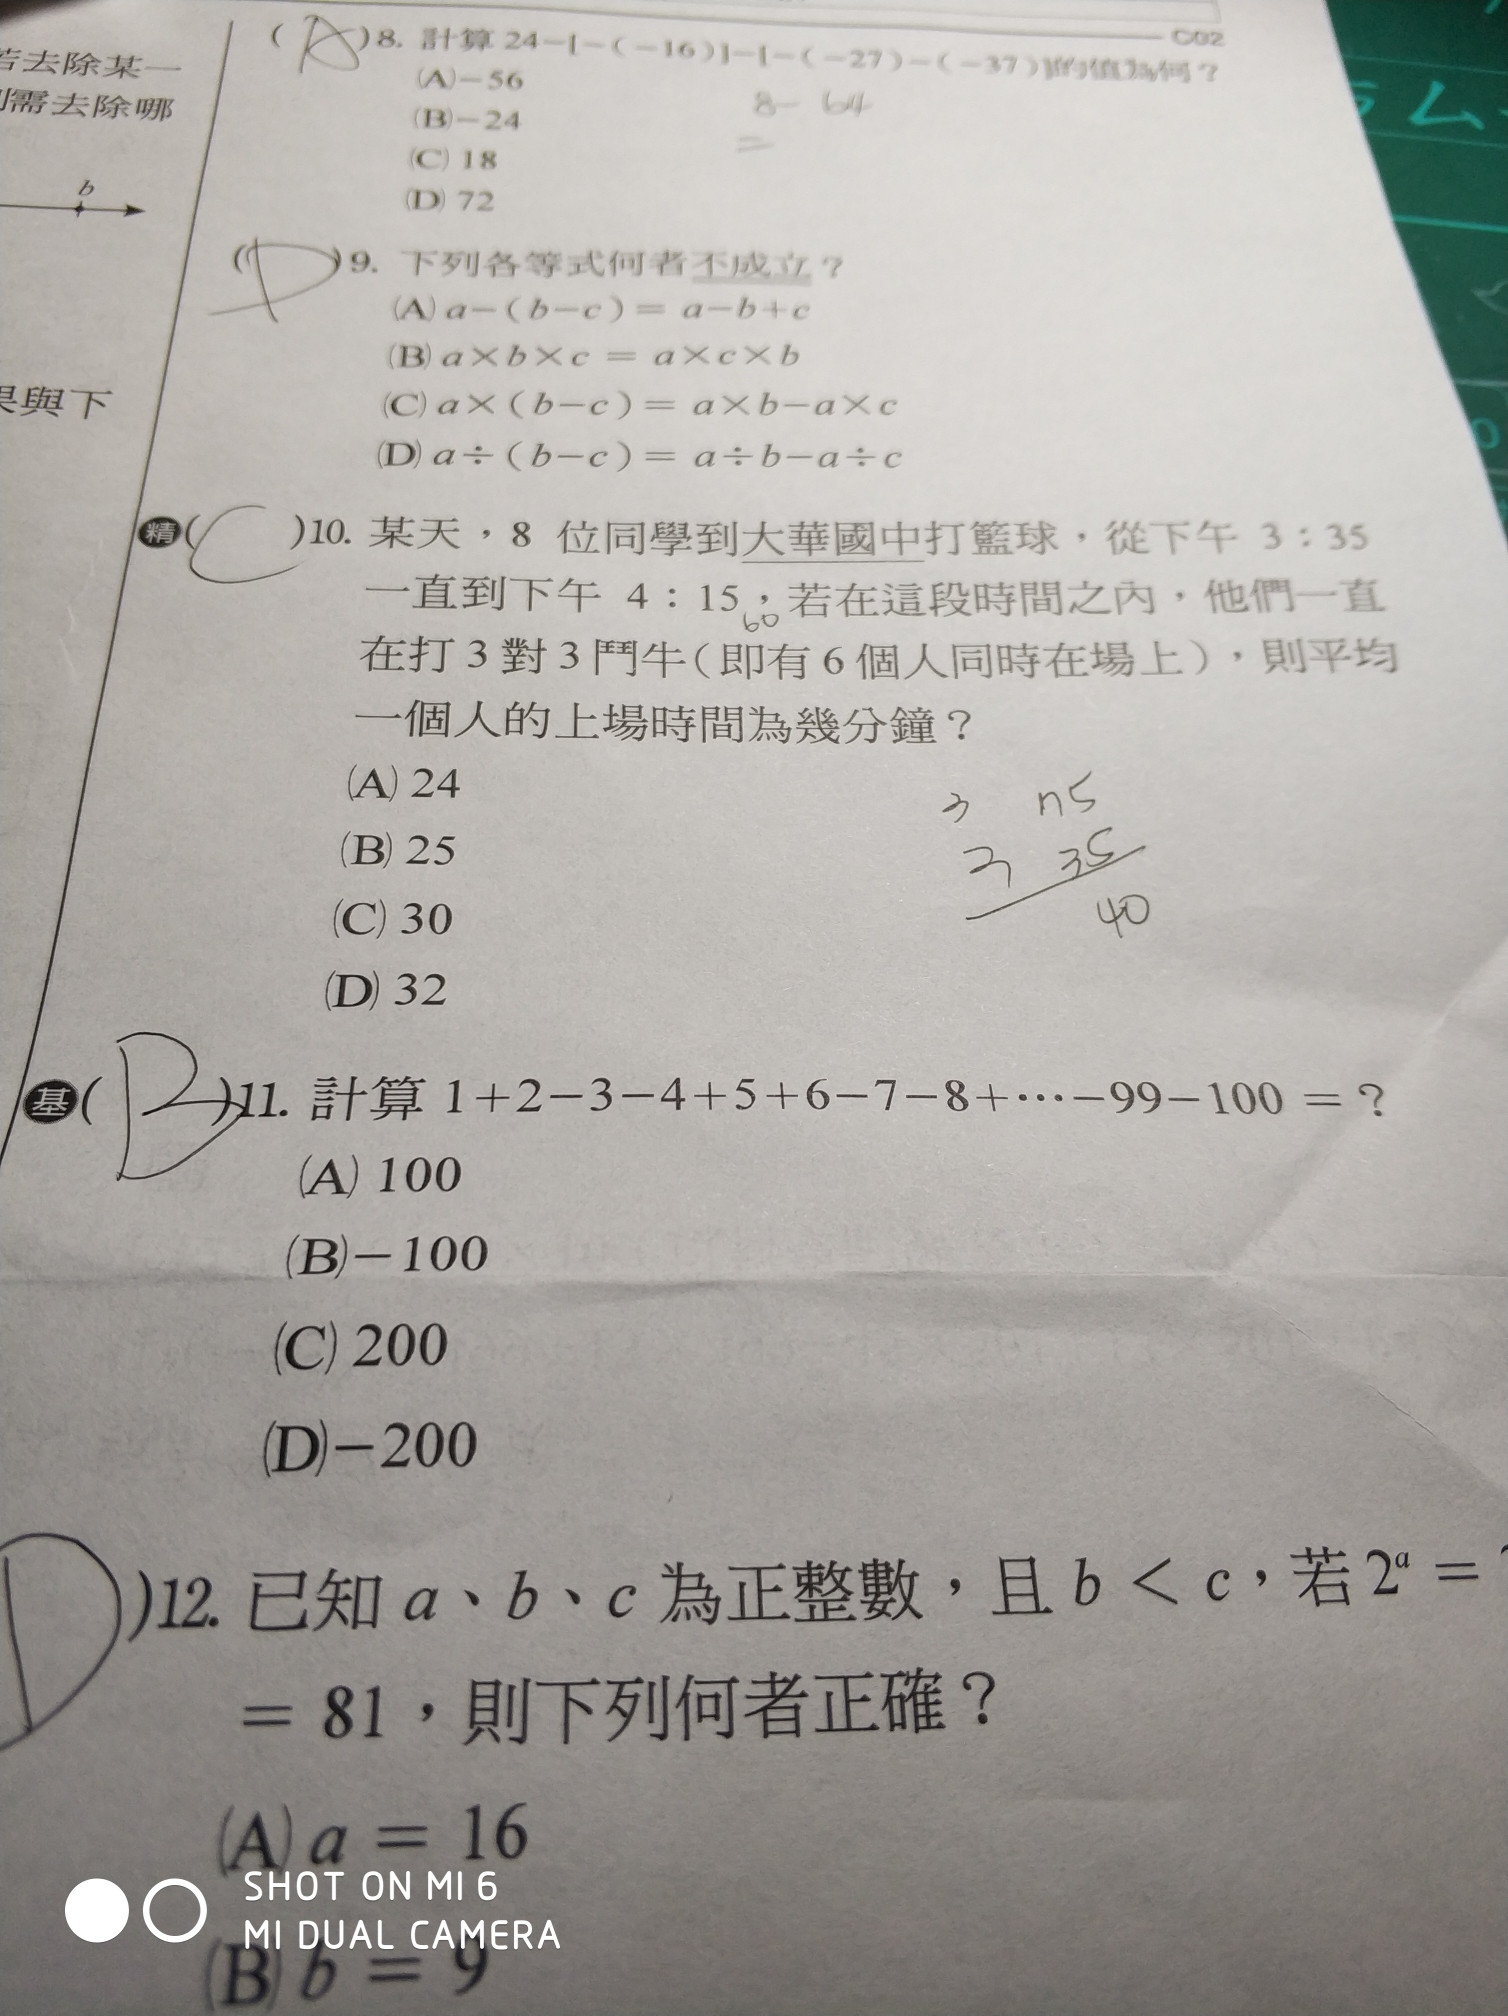 若去除某一
則需去除哪
b
果與下
C02
(A)8. 計算 24-[-(-16)]-[-(-27)-(-37)]的值為何？
(A)-56
8- 64
(B)-24
=
(C) 18
(D) 72
(D)9. 下列各等式何者不成立？
(A) a-(b-c)= a-b+c
(B) a×b×c = a×c×b
(C) a×(b-c)= a×b-a×c
(D) a÷(b-c)= a÷b-a÷c
精(C)10. 某天，8 位同學到大華國中打籃球，從下午 3：35
一直到下午 4：15，若在這段時間之內，他們一直
60
在打 3 對 3 鬥牛(即有 6 個人同時在場上)，則平均
一個人的上場時間為幾分鐘？
(A) 24
(B) 25
(C) 30
(D) 32
3 35
40
基(B)11. 計算 1+2-3-4+5+6-7-8+⋯-99-100 = ?
(A) 100
(B)-100
(C) 200
(D)-200
D)12. 已知 a、b、c 為正整數，且 b < c，若 2ᵃ =
= 81，則下列何者正確？
(A) a = 16
SHOT ON MI 6
MI DUAL CAMERA
(B) b = 9